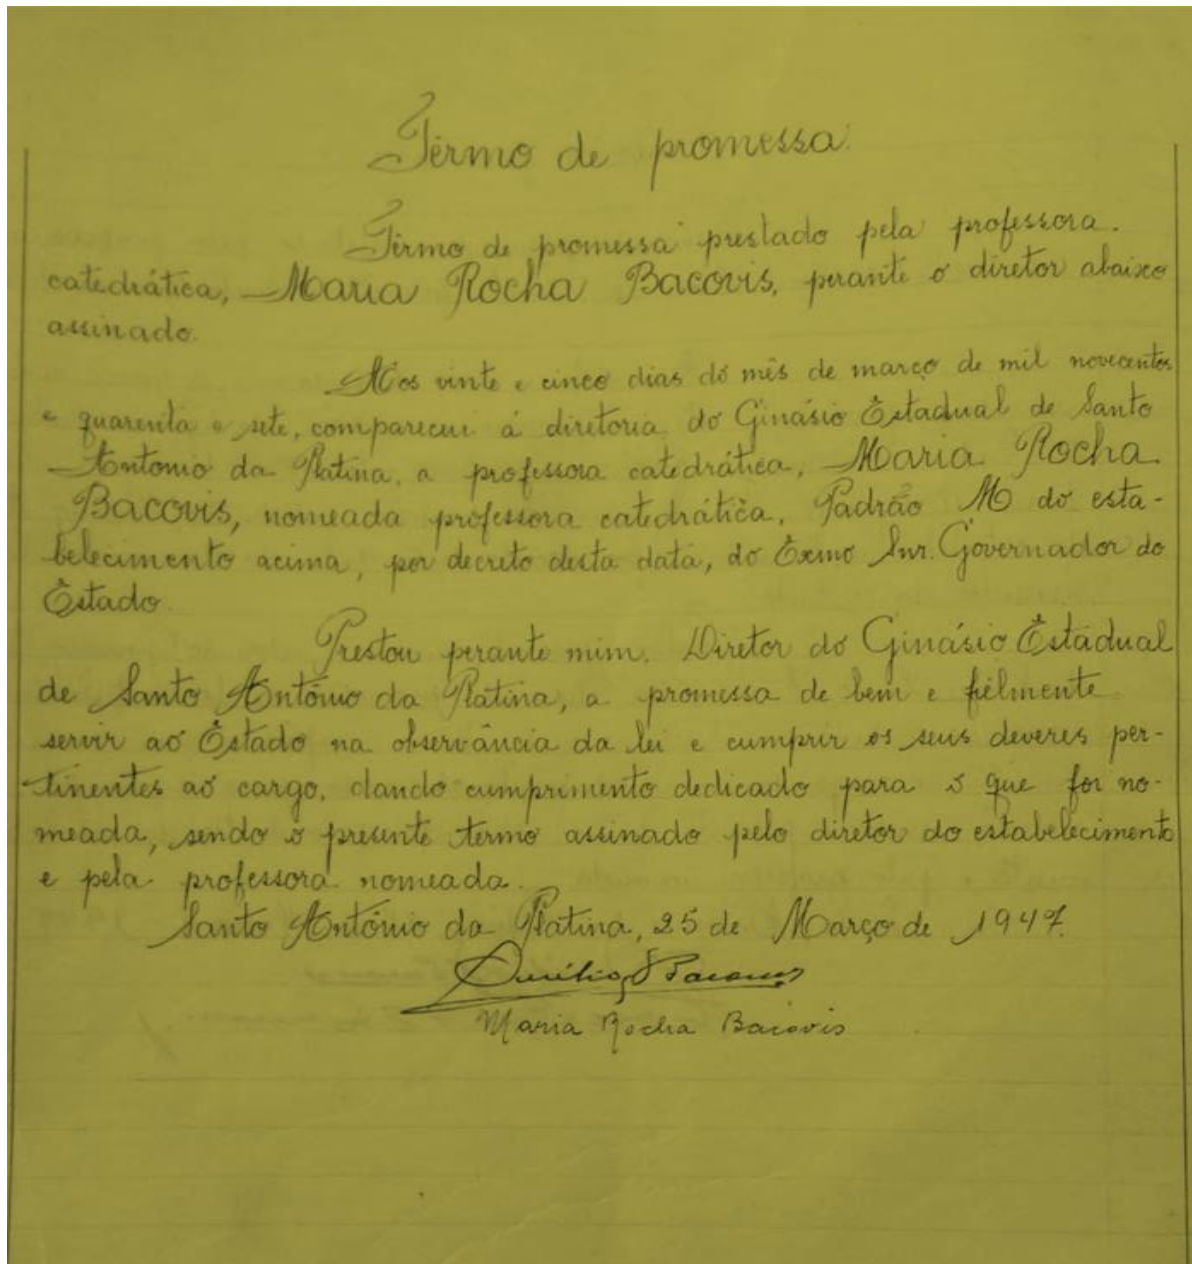 Têrmo de promessa
Têrmo de promessa prestado pela professora
catedrática, Maria Rocha Bacovis, perante o diretor abaixo
assinado.
Aos vinte e cinco dias do mês de março de mil novecentos
e quarenta e sete, compareceu á diretoria do Ginásio Estadual de Santo
Antonio da Platina, a professora catedrática, Maria Rocha
Bacovis, nomeada professora catedrática, Padrão M do esta-
belecimento acima, por decreto desta data, do Exmo Snr. Governador do
Estado.
Prestou perante mim. Diretor do Ginásio Estadual
de Santo Antônio da Platina, a promessa de bem e fielmente
servir ao Estado na observância da lei e cumprir os seus deveres per-
tinentes ao cargo, dando cumprimento dedicado para o que foi no-
meada, sendo o presente termo assinado pelo diretor do estabelecimento
e pela professora nomeada.
Santo Antônio da Platina, 25 de Março de 1947.
Maria Rocha Bacovis